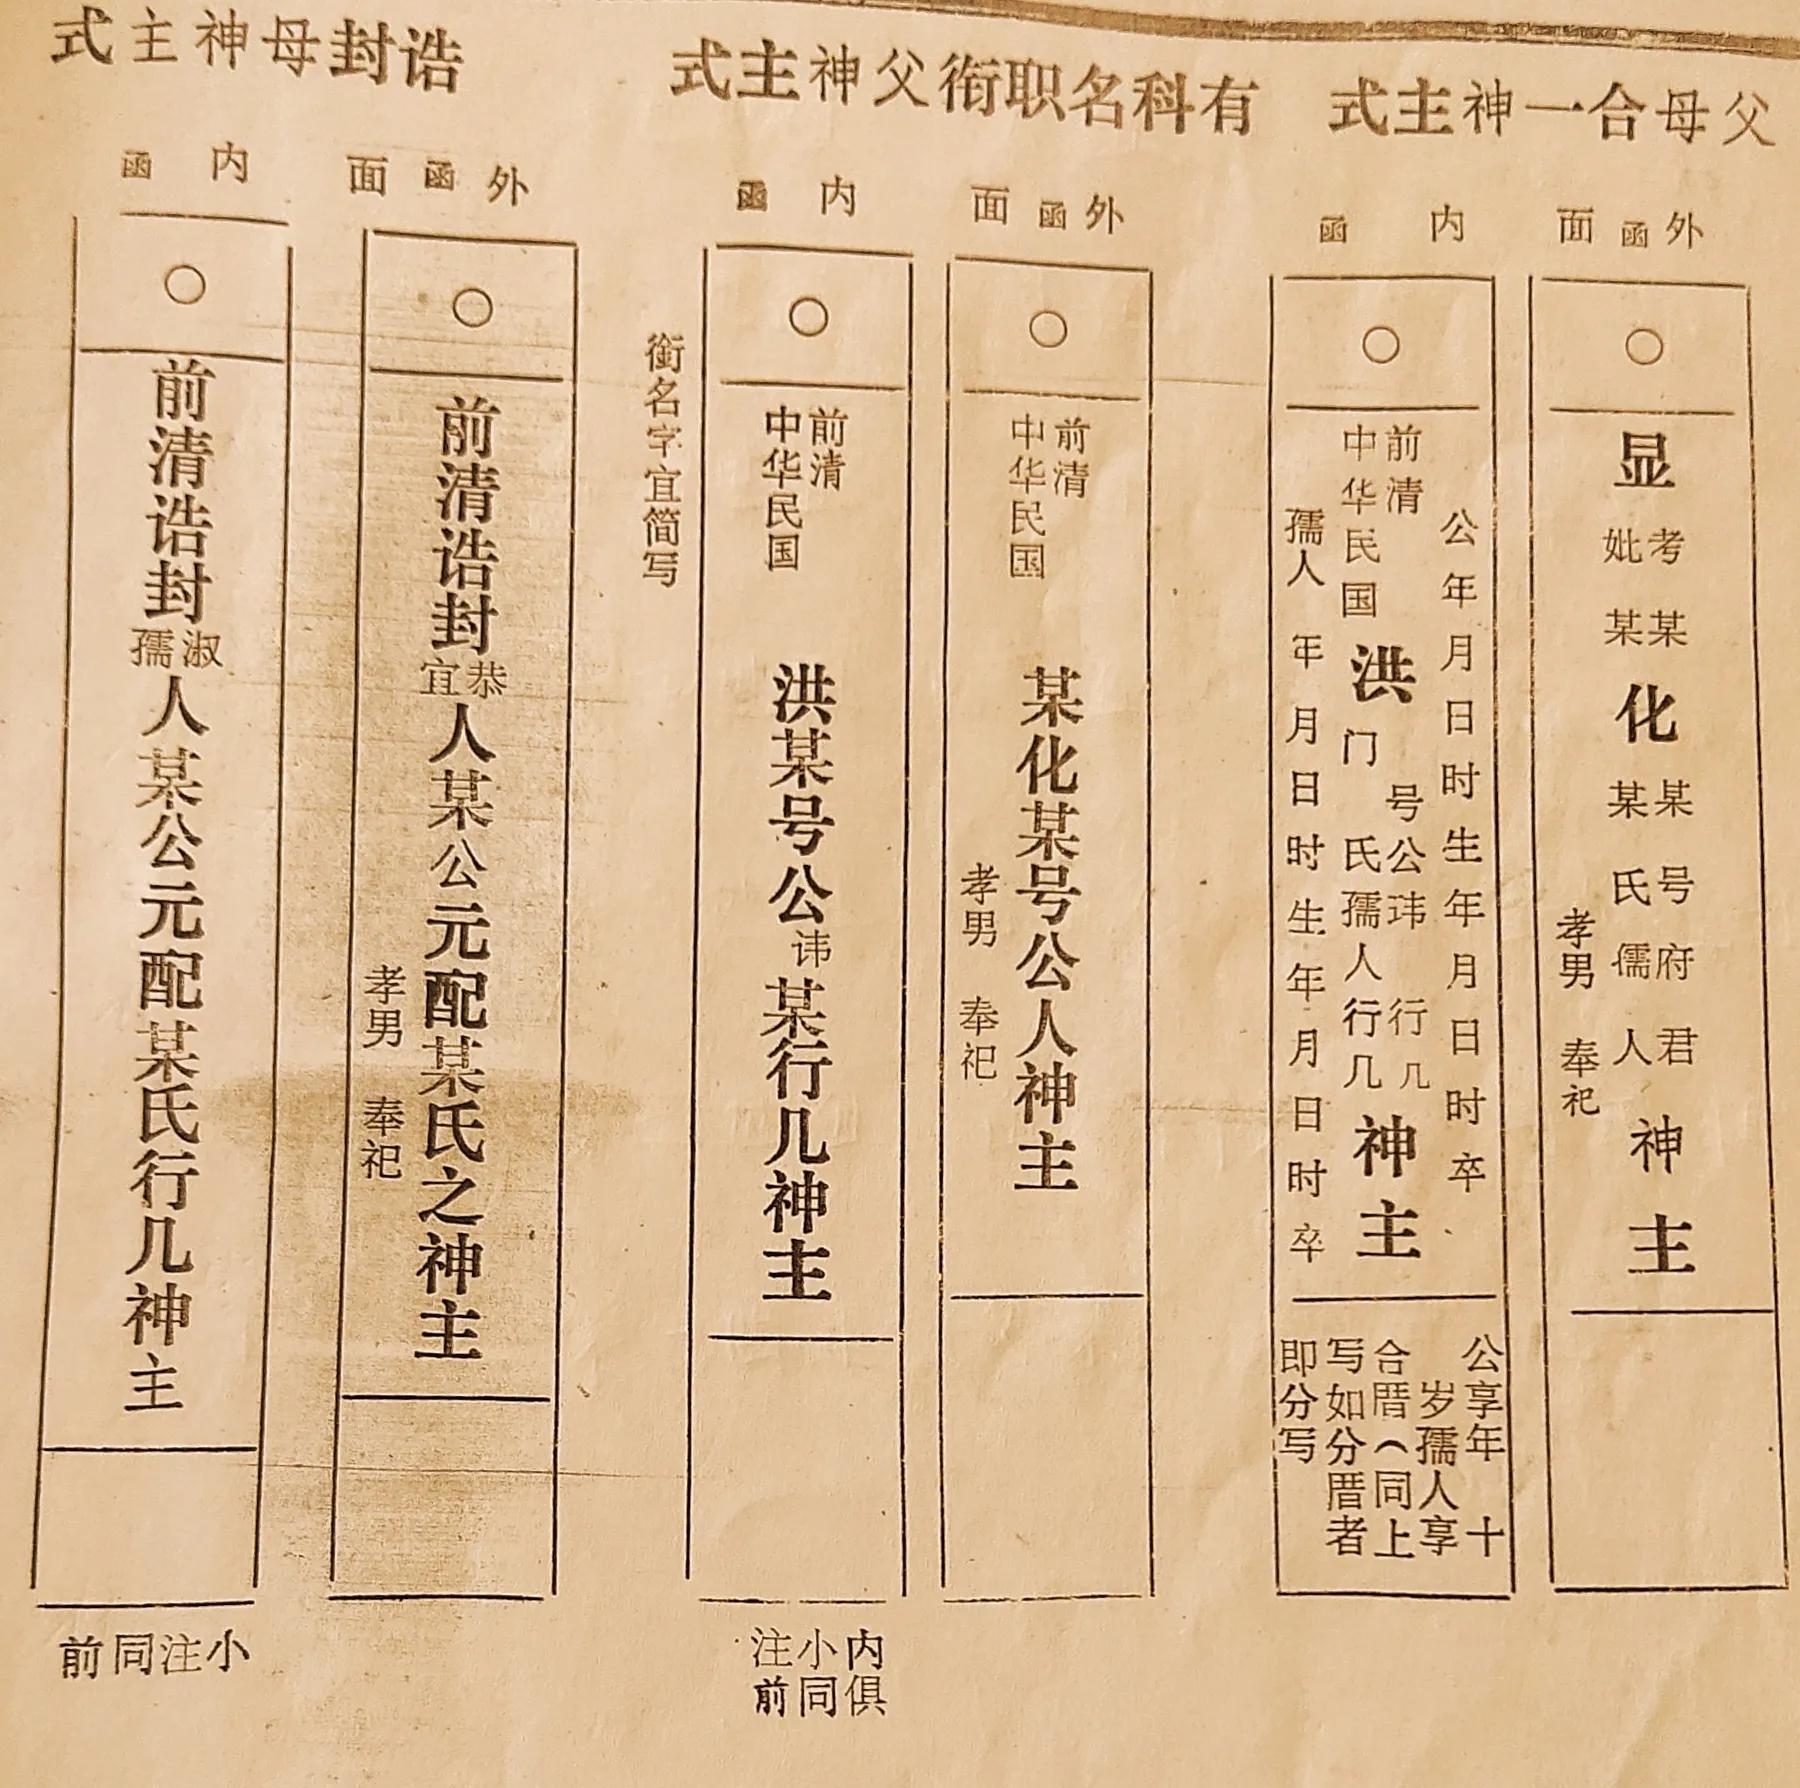 父母合一神主式
外函面
○
显
考某
妣某
化
某号府君
某氏儒人
神主
孝男 奉祀
内函
○
公年月日时生年月日时卒
前清
中华民国
洪
号公玮 行几
门 氏孺人行几
神主
孺人 年月日时生年月日时卒
公享年 十
岁孺人享
合厝(同上
写如分厝者
即分写
有科名职衔父神主式
外函面
○
前清
中华民国
某化某号公人神主
孝男 奉祀
内函
○
前清
中华民国
洪某号公讳某行几神主
衔名字宜简写
内俱
小同
注前
诰封母神主式
外函面
○
前清诰封
恭
宜
人某公元配某氏之神主
孝男 奉祀
内函
○
前清诰封
淑
孺
人某公元配某氏行几神主
小注同前